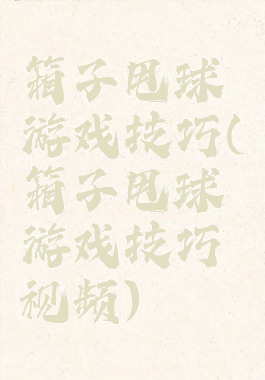 箱子甩球
游戏技巧(
箱子甩球
游戏技巧
视频)